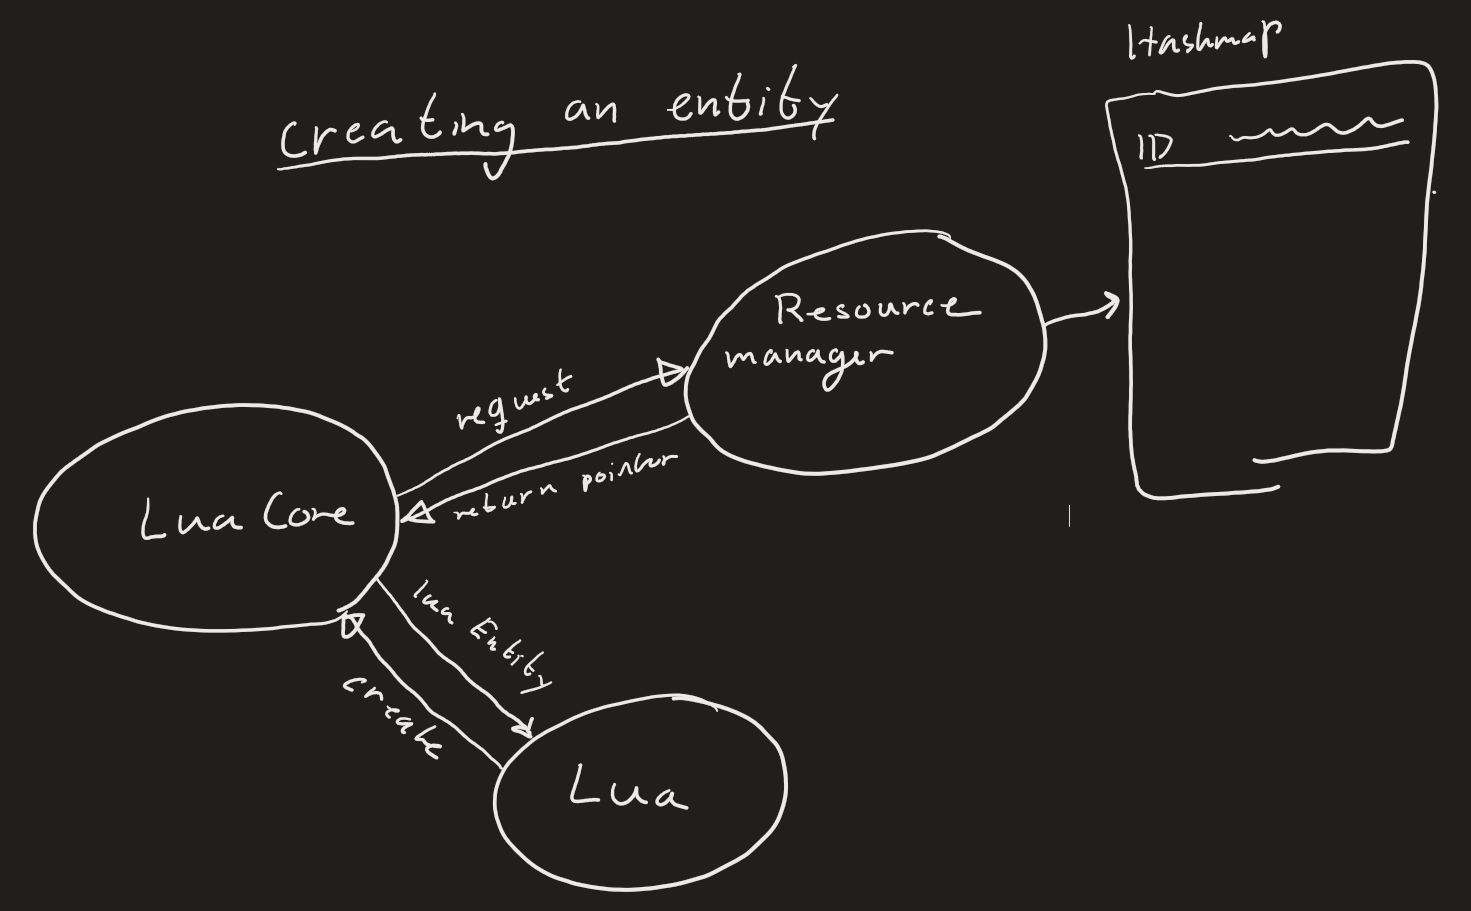 Hashmap
creating an entity
ID
Resource
manager
request
return pointer
Lua Core
lua Entity
create
Lua